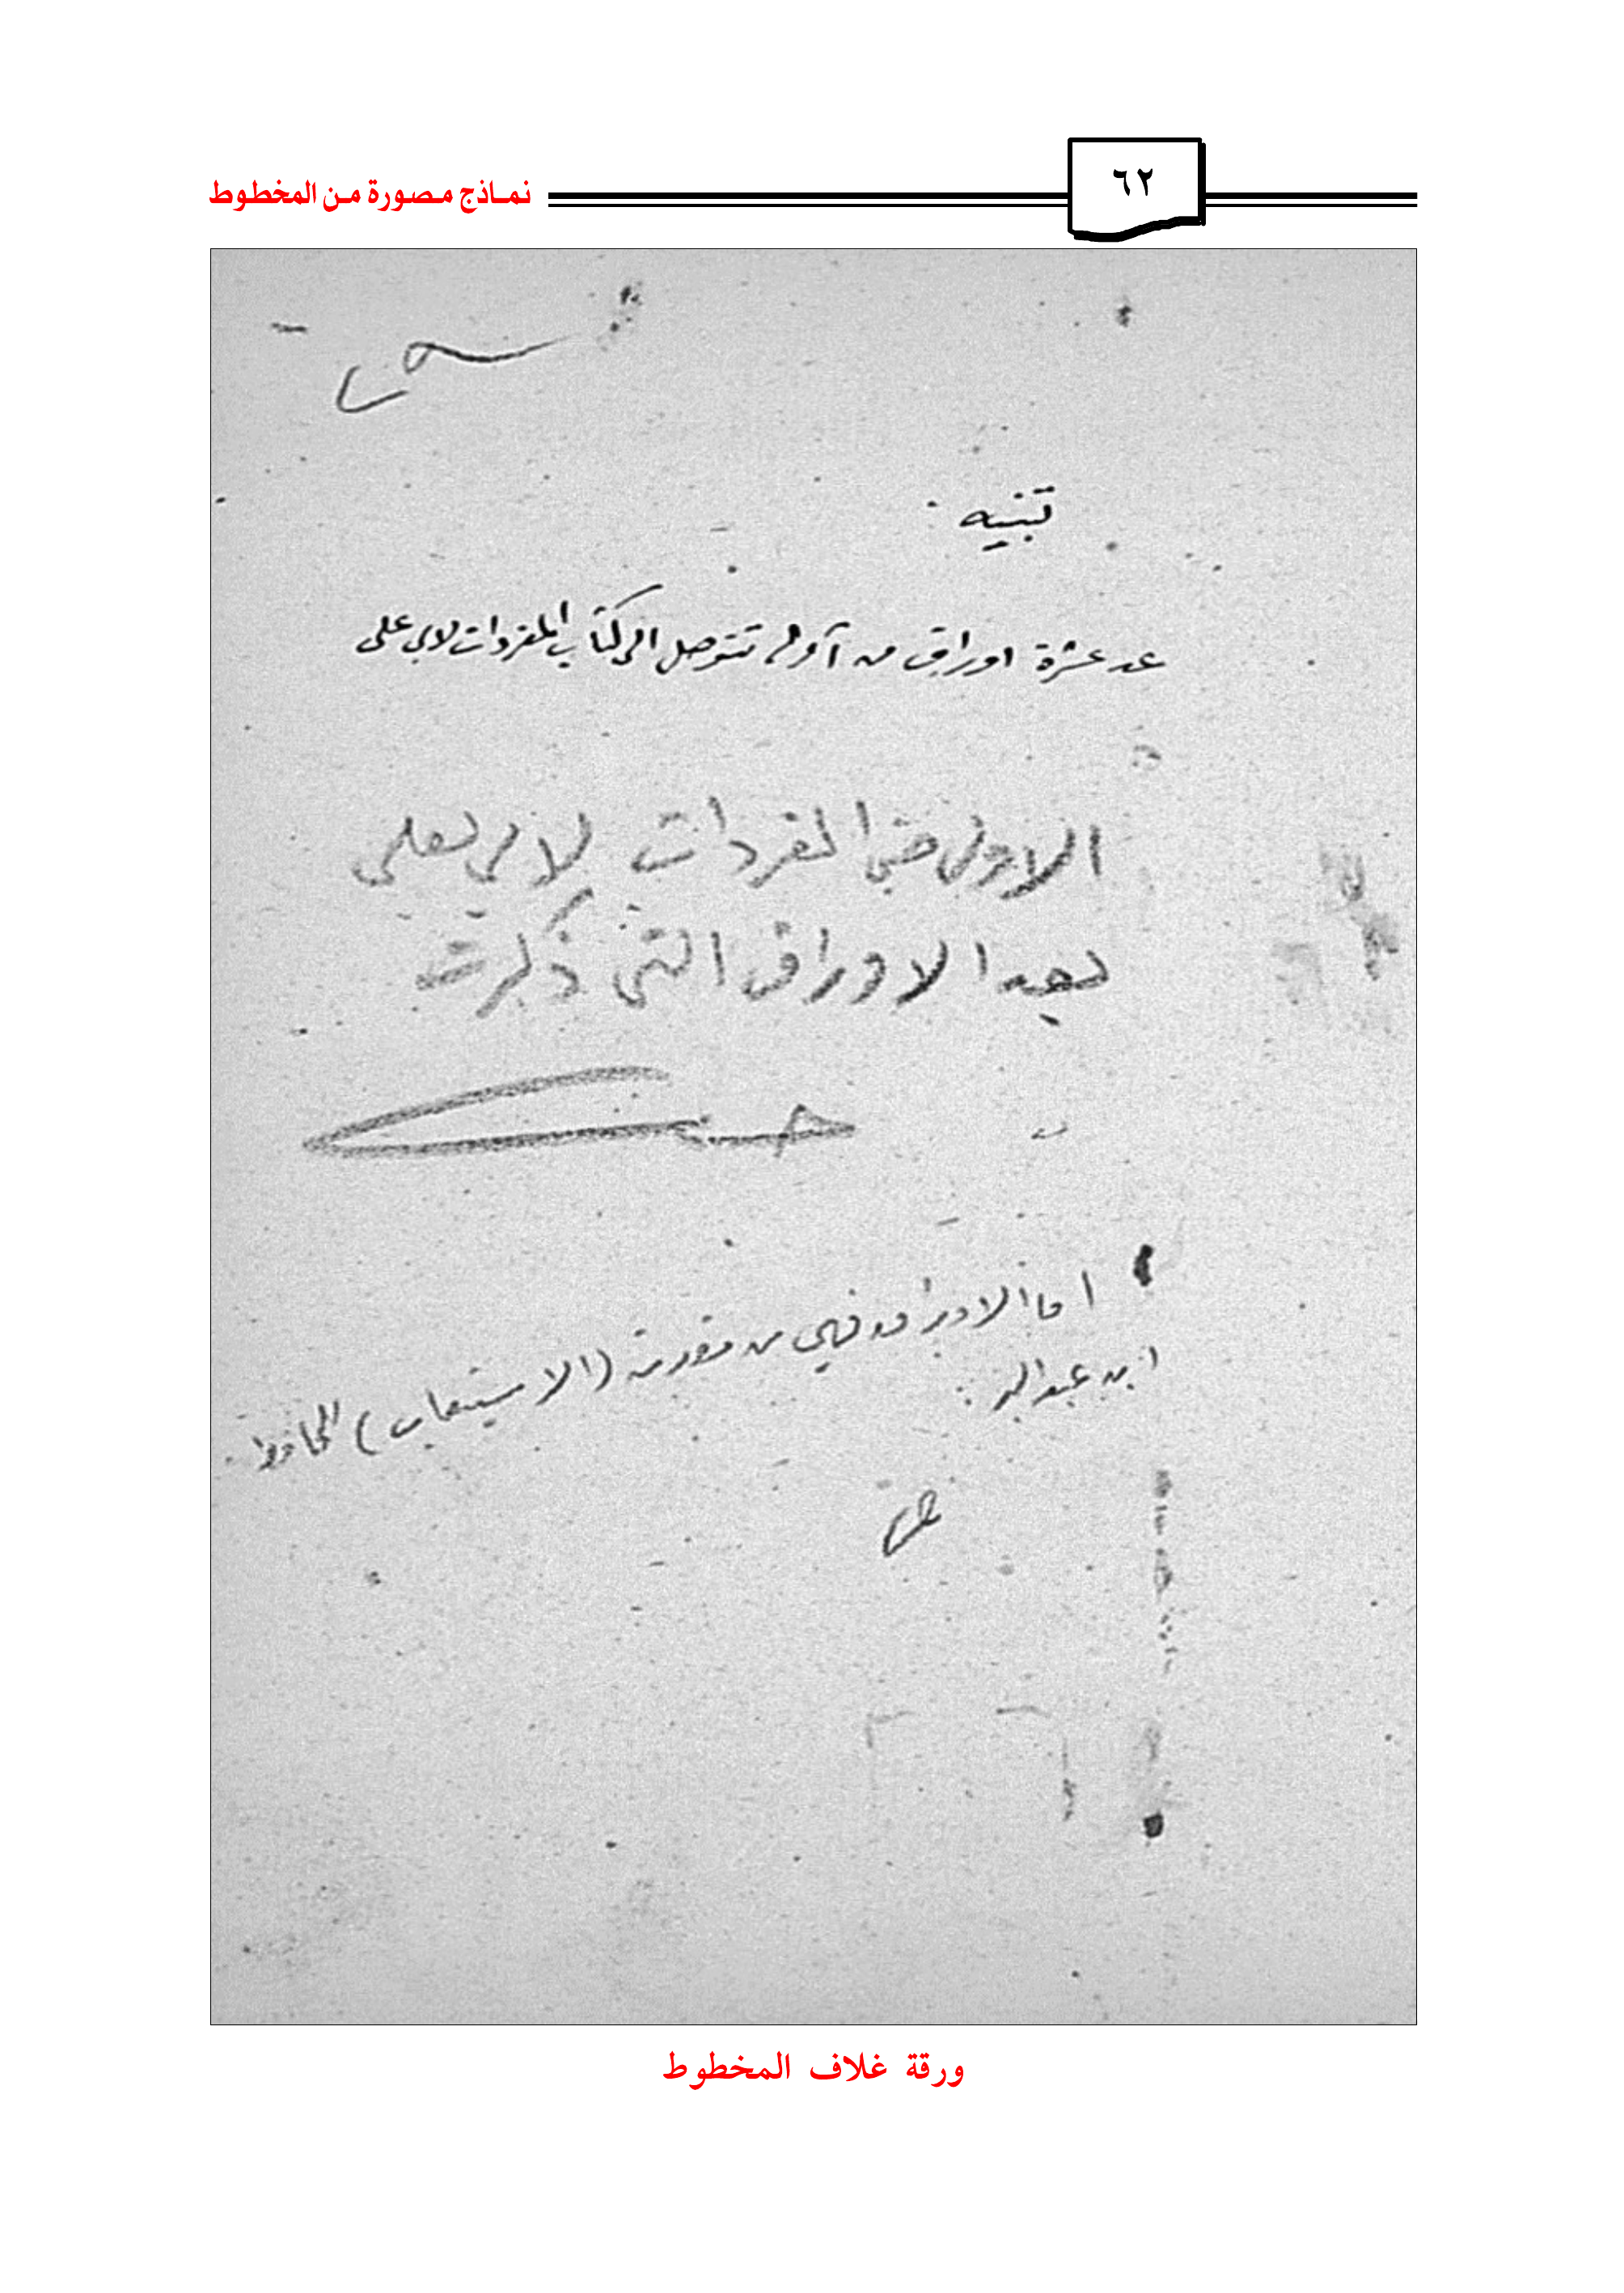 نمـاذج مـصـورة مـن المخطـوط
٦٢
تنبيه :
عد عشرة اوراق من آوله تتوصل الى كتاب المفردات لابي على
الاولى المفردات لابي يعلى
بعد الاوراق التي ذكرت
اما الاوراق فهي من مقدمة (الاستيعاب) للحافظ
ابن عبد البر .
ورقة غلاف المخطوط